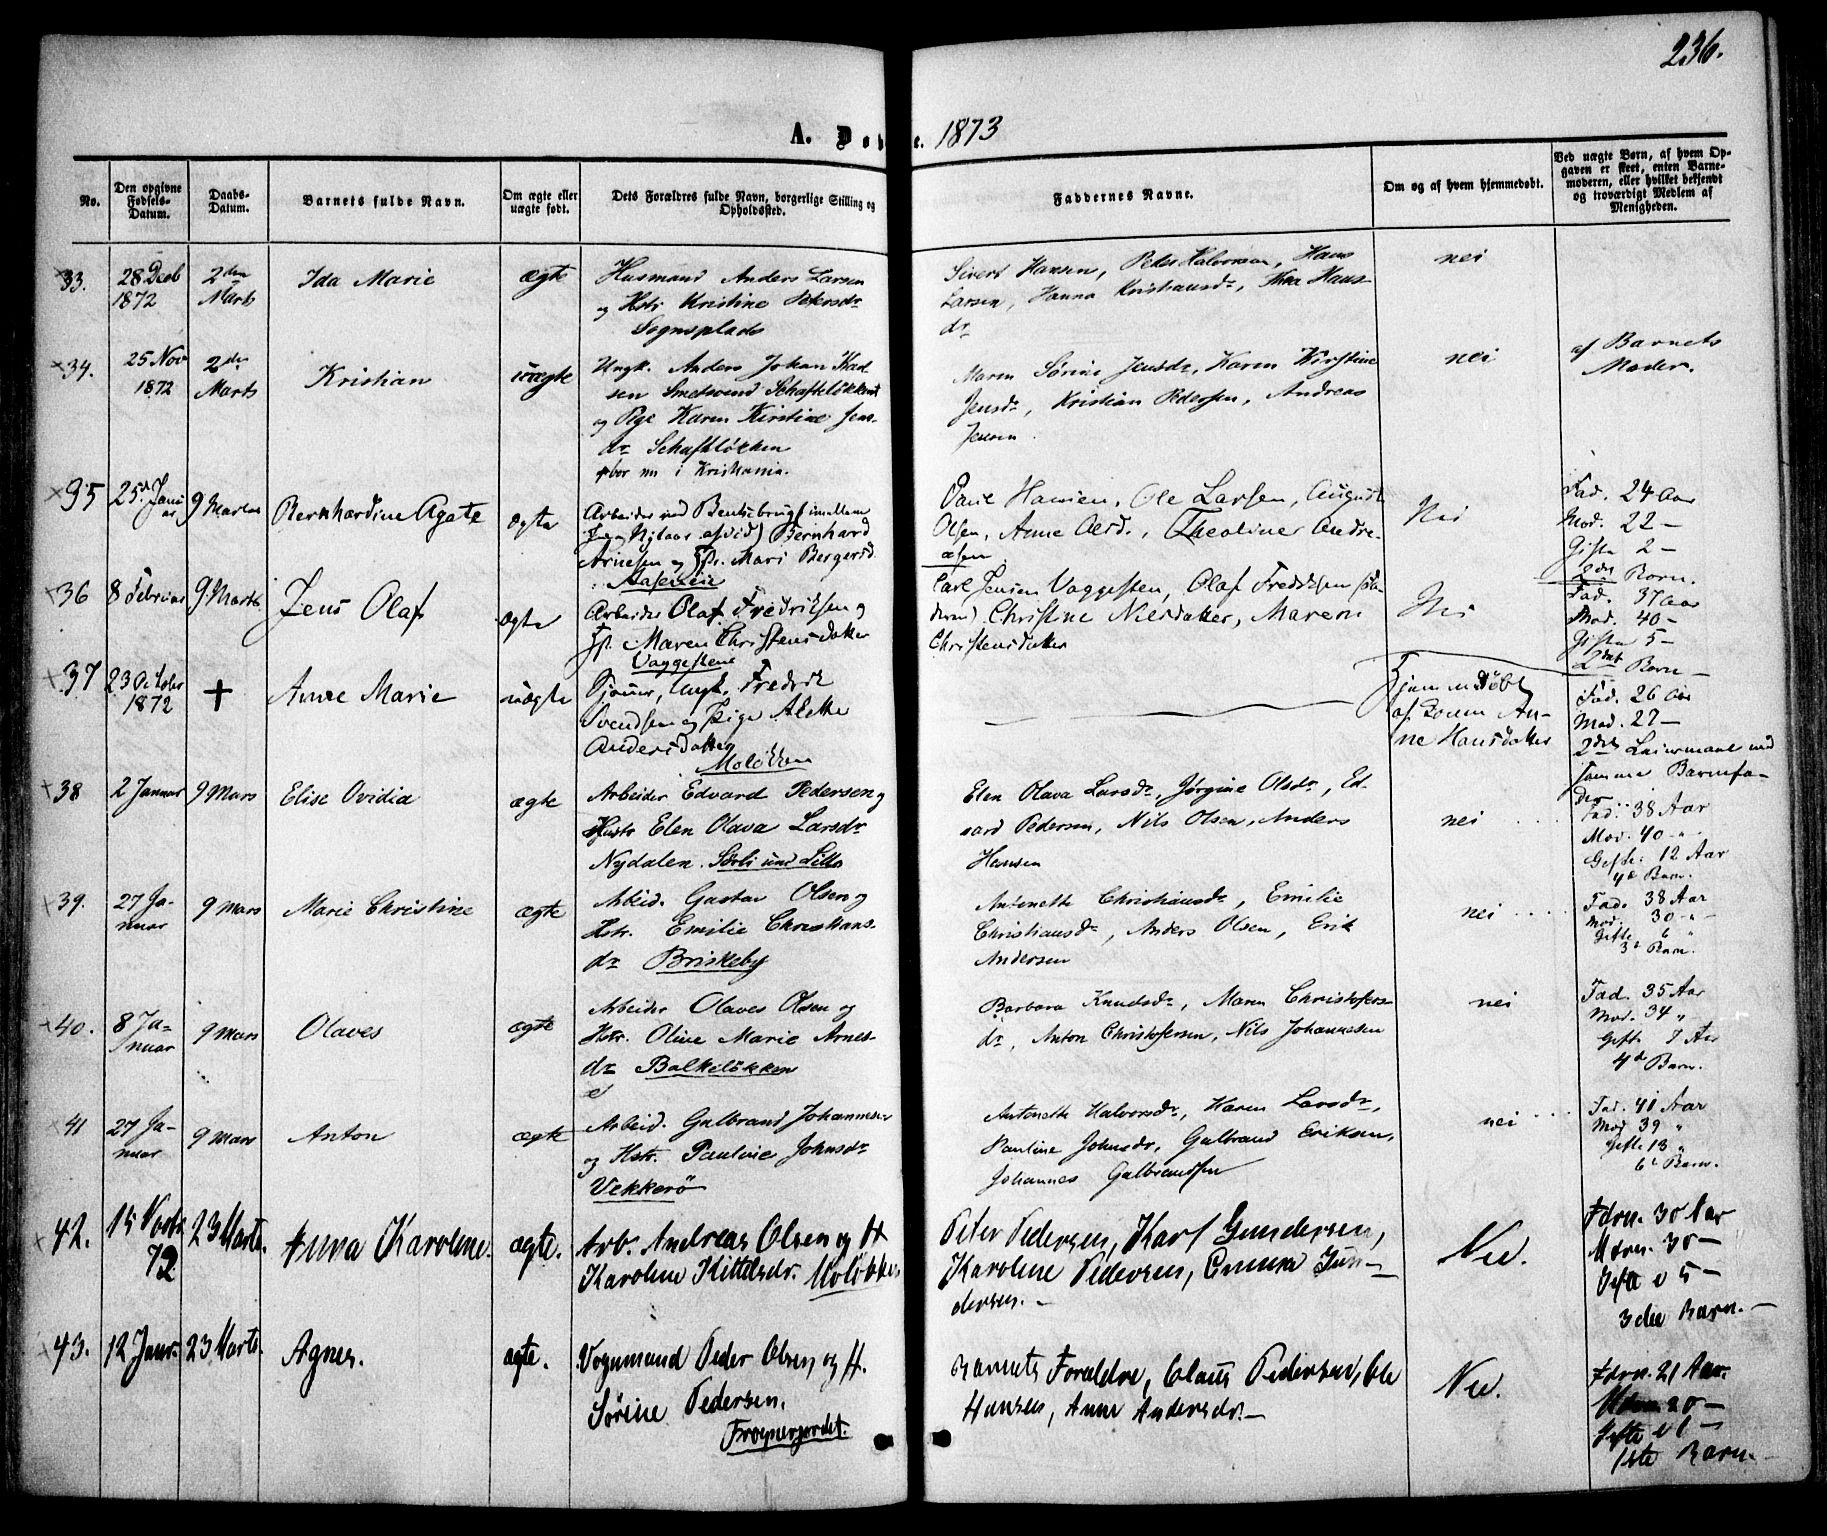 236.
A. Døbte. 1873
No.
Den opgivne Fødsels-Datum.
Daabs-Datum.
Barnets fulde Navn.
Om ægte eller uægte født.
Dets Forældres fulde Navn, borgerlige Stilling og Opholdssted.
Faddernes Navne.
Om og af hvem hjemmedøbt.
Ved uægte Børn, af hvem Opgaven er skeet, enten Barnemoderen, eller hvilket bekjendt og troværdigt Medlem af Menigheden.
33.
28 Decb 1872
2den Marts
Ida Marie
ægte
Husmand Anders Larsen
og Hstr Kristine Petersdr
Sognsplads
Sivert Hansen, Peter Halvorsen, Hans
Larsen, Hanna Kristiansdr, Hans-
dr
nei
34.
25 Nov 1872
2den Marts
Kristian
uægte
Ungk. Anders Johan Karl-
sen Smedsvend Schafteløkken
og Pige Karen Kirstine Jens-
dr Schafteløkken
bor nu i Kristiania.
Maren Sørine Jensdr, Karen Kirstine
Jensdr, Kristian Pedersen, Andreas
Jensen
nei
af Barnets
Moder.
35
25d Januar
9 Marts
Bernhardine Agate
ægte
Arbeider ved Bentsebrug
Bernhard
Arnesen og Mari Bergersd.
Hansen, Ole Larsen, August
Olsen, Anne Olsd., Theoline Andre-
æsen
Nei
Fad. 24 Aar
Mod. 22 —
Gifte 2 —
2det Barn.
36
8 Februar
9 Marts
Jens Olaf
ægte
Arbeider Olaf Fredriksen og
Maren Christensdatter
Vaggestene
Carl Jensen Vaggesten, Olaf Fredriksen (Fa-
deren) Christine Nilsdatter, Maren
Christensdatter
Nei
Fad. 37 Aar
Mod. 40 —
Gifte 5 —
2det Barn
37
23 October 1872
+
Anne Marie
uægte
Ungk. Fredrik
Svendsen og Pige Alette
Andersdatter
Moløkken
Hjemmedøbt
af Anne Hansdatter
Fad. 26 Aar
Mod. 27 —
2det Leiermaal med
samme Barnefa-
der
38
2 Januar
9 Mars
Elise Ovidia
ægte
Arbeider Edvard Pedersen og
Hustr Elen Olava Larsdr
Nydalen.
Elen Olava Larsdr, Jørgine Olsdr, Ed-
vard Pedersen, Nils Olsen, Anders
Hansen
nei
Fad. 38 Aar
Mod. 40 "
Gifte. 12 Aar
4d Barn.
39.
27 Ja-
nuar
9 Mars
Marie Christine
ægte
Arbeid. Gustav Olsen og
Hstr. Emilie Christians-
dr Briskeby
Antonette Christiansdr, Emilie
Christiansdr, Anders Olsen, Erik
Andersen
nei
Fad. 38 Aar
Mod. 30 "
Gifte 6 "
3d Barn.
40.
8 Ja-
nuar
9 Mars
Olaves
ægte
Arbeider Olaves Olsen og
Hstr. Oline Marie Arnes-
dr Balkeløkken
Barbara Knudsdr, Maren Christofers-
dr, Anton Christofersen, Nils Johannesen
nei
Fad. 35 Aar
Mod. 34 "
Gifte 7 Aar
4d Barn.
41
27 Ja-
nuar
9 Mars
Anton
ægte
Arbeid. Gulbrand Johannesen
og Hstr. Pauline Johnsdr
Vekkerö
Antonette Halvorsdr, Karen Larsdr,
Pauline Johnsdr, Gulbrand Eriksen,
Johannes Gulbrandsen
nei
Fad. 41 Aar
Mod 39 "
Gifte 13 "
6t Barn.
42.
15 Novbr 72
23 Marts.
Anna Karoline.
ægte.
Arb. Andreas Olsen og H
Karoline Kittelsdr. Moløkken
Peter Pedersen, Karl Gundersen,
Karoline Pedersen, Emma Gun-
dersen. —
Nei.
Fdrn. 30 Aar
Mdrn. 30 —
Gifte i 5 —
3die Barn. —
43.
12 Janr.
23 Marts.
Agnes.
ægte.
Vognmand Peder Olsen og H.
Sørine Pedersen.
Frognergjordet.
Barnets Forældre, Claus Pedersen, Ole
Hansen, Anne Andersdr. —
Nei.
Fdrn. 21 Aar.
Mdrn. 20 —
Gifte i 1 —
1ste Barn —